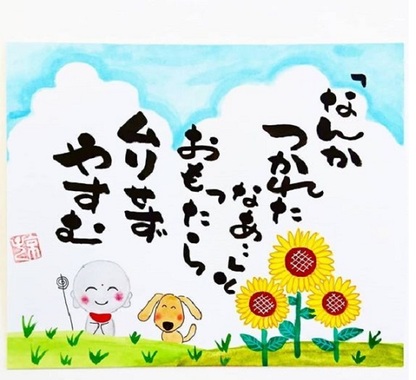 「なんか
つかれた
なあ…」と
おもったら
ムリせず
やすむ